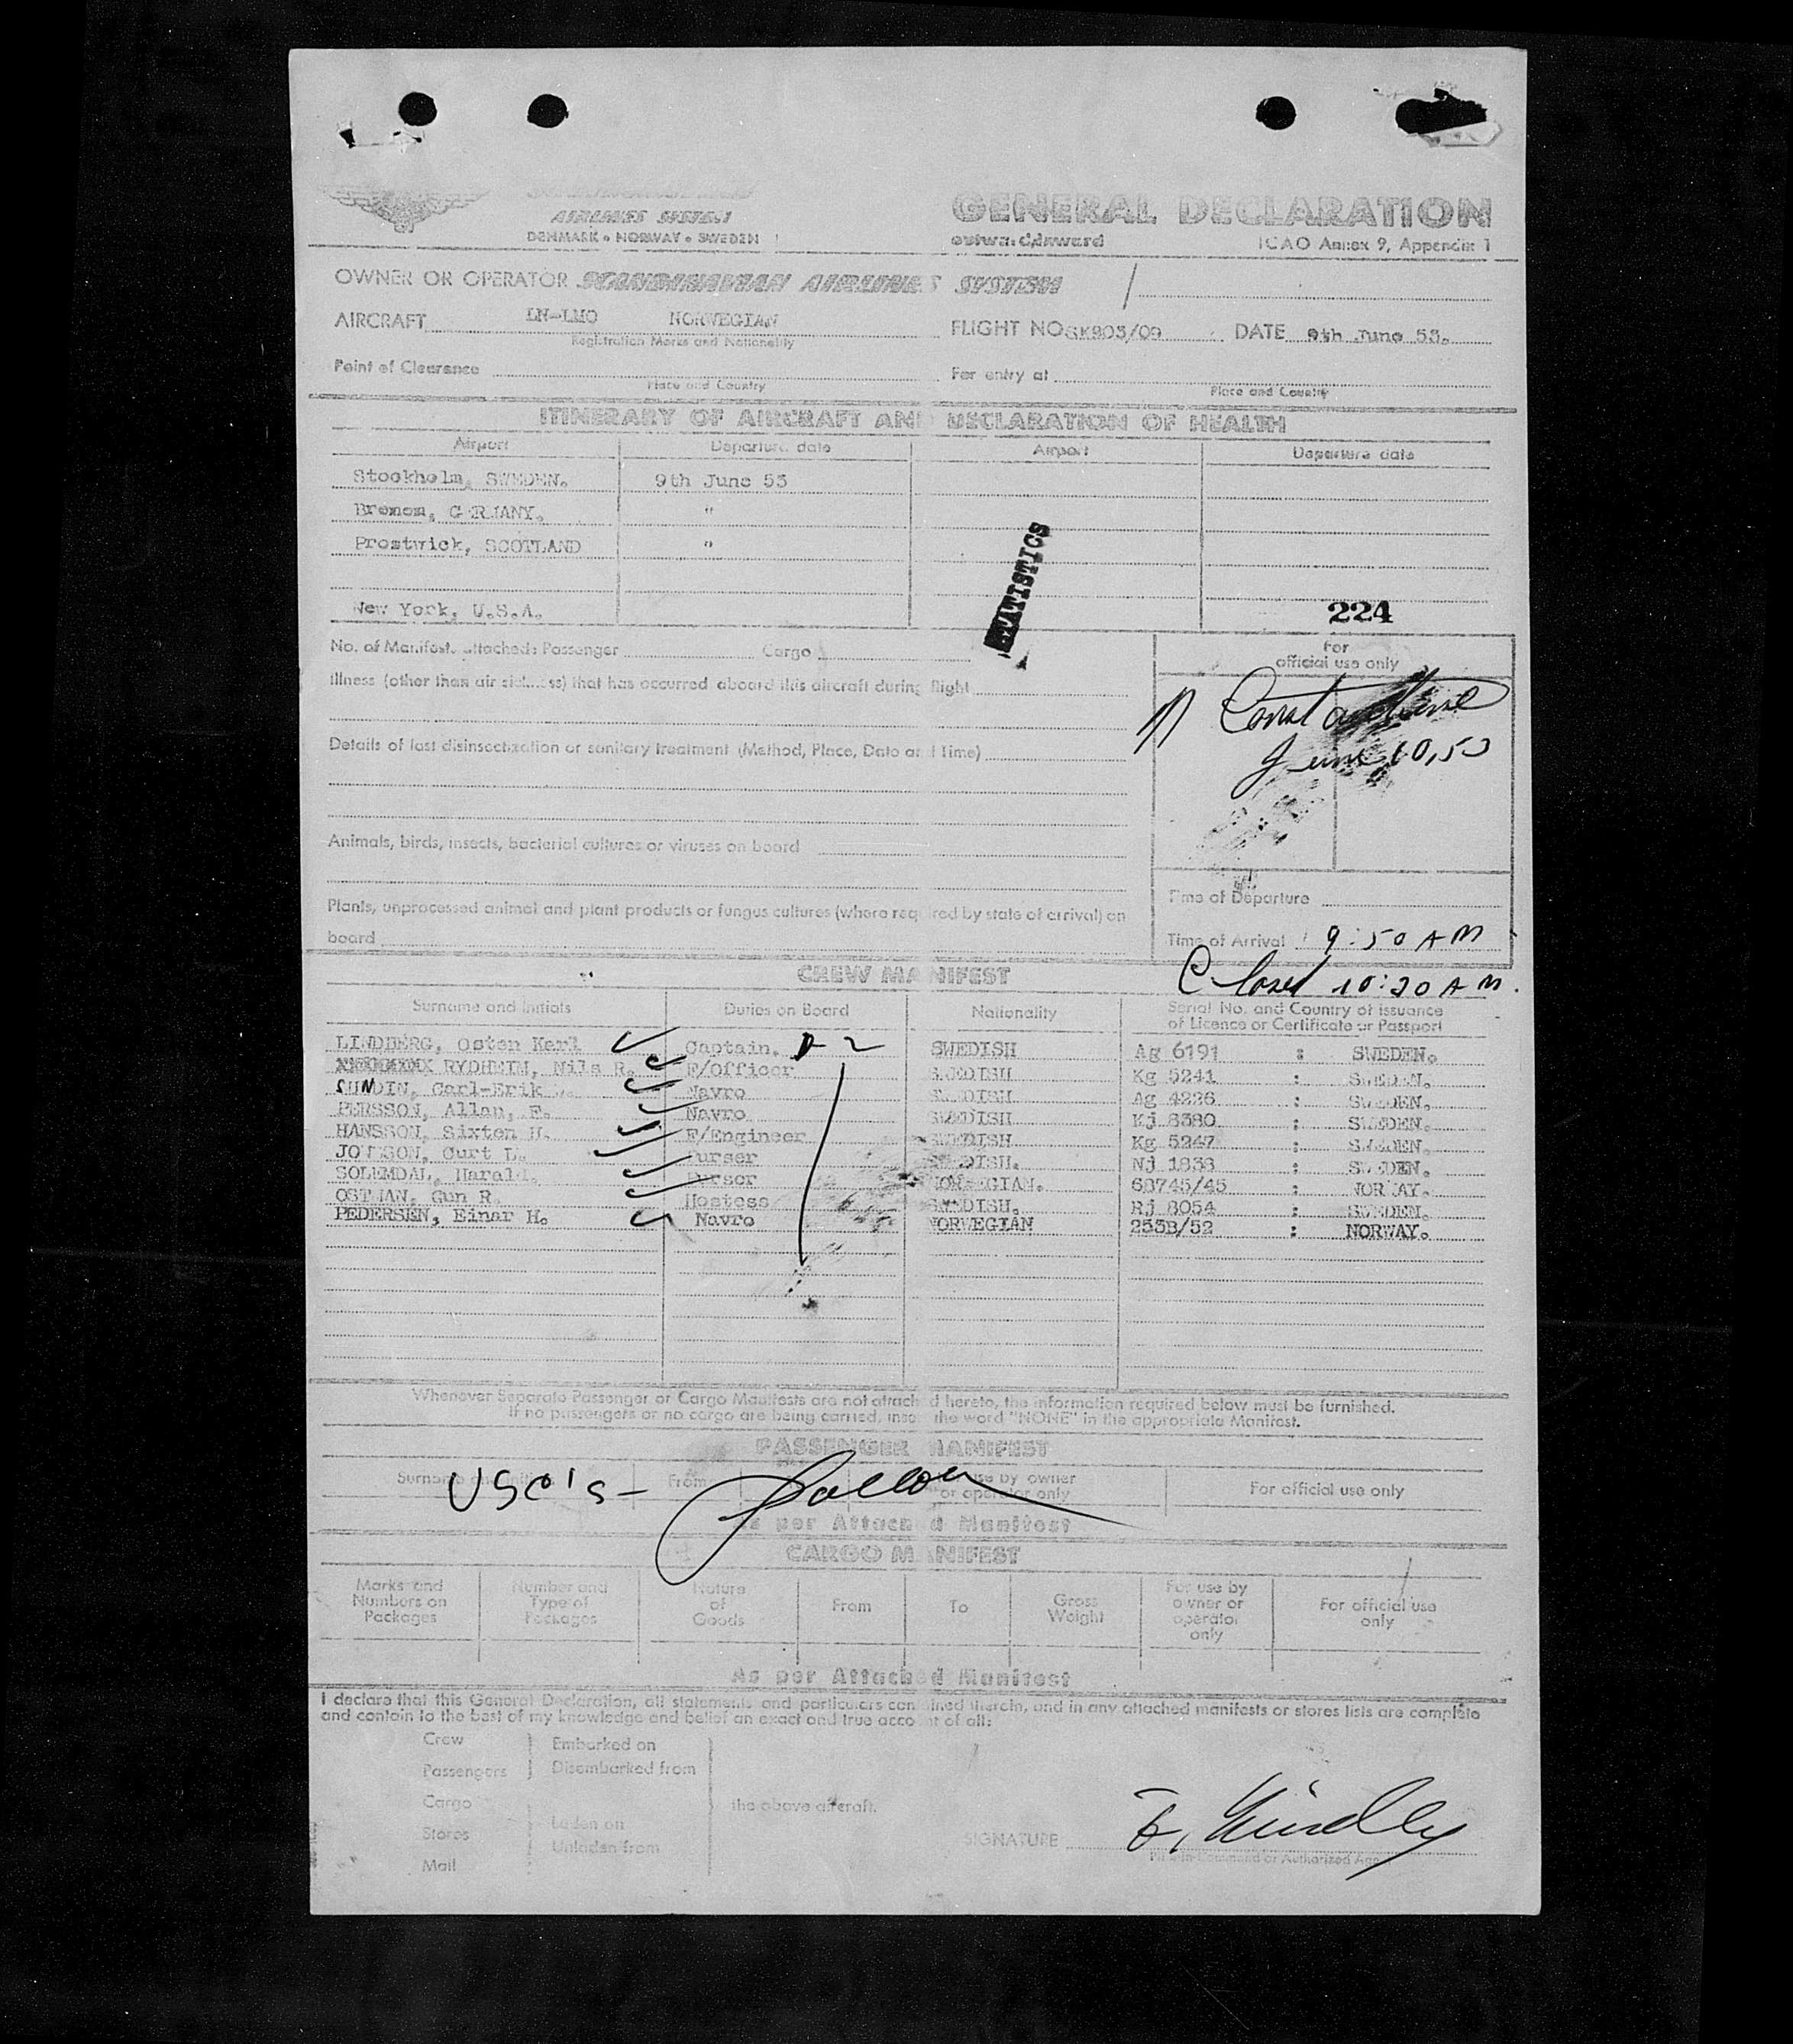 AIRLINES SYSTEM
DENMARK • NORWAY • SWEDEN
GENERAL DECLARATION
outward/inward
ICAO Annex 9, Appendix 1
OWNER OR OPERATOR SCANDINAVIAN AIRLINES SYSTEM
AIRCRAFT LN-LMO NORWEGIAN
Registration Marks and Nationality
FLIGHT NO SK903/09 DATE 9th June 53.
Point of Clearance
Place and Country
For entry at
Place and Country
ITINERARY OF AIRCRAFT AND DECLARATION OF HEALTH
Airport Departure date Airport Departure date
Stockholm, SWEDEN. 9th June 53
Bremen, GERMANY. "
Prestwick, SCOTLAND "
New York, U.S.A.
STATISTICS
224
No. of Manifest attached: Passenger Cargo
For
official use only
Illness (other than air sickness) that has occurred aboard this aircraft during flight
Constantine
June 10, 53
Details of last disinsectization or sanitary treatment (Method, Place, Date and Time)
Animals, birds, insects, bacterial cultures or viruses on board
Plants, unprocessed animal and plant products or fungus cultures (where required by state of arrival) on
board
Time of Departure
Time of Arrival 9:50 AM
Closed 10:20 AM.
CREW MANIFEST
Surname and Initials Duties on Board Nationality Serial No. and Country of issuance
of Licence or Certificate or Passport
LINDBERG, Osten Karl Captain. D-2 SWEDISH Ag 6191 : SWEDEN.
RYDHEIM, Nils R. F/Officer SWEDISH Kg 5241 : SWEDEN.
SUNDIN, Carl-Erik Navro SWEDISH Ag 4226 : SWEDEN.
PERSSON, Allan, F. Navro SWEDISH Kj 8380 : SWEDEN.
HANSSON, Sixten H. F/Engineer SWEDISH Kg 5247 : SWEDEN.
JONSSON, Curt L. Purser SWEDISH. Nj 1838 : SWEDEN.
SOLEMDAL, Harald. Pursor NORWEGIAN. 68745/45 : NORWAY.
OSTMAN, Gun R. Hostess SWEDISH. Rj 8054 : SWEDEN.
PEDERSEN, Einar H. Navro NORWEGIAN 253B/52 : NORWAY.
Whenever Separate Passenger or Cargo Manifests are not attached hereto, the information required below must be furnished.
If no passengers or no cargo are being carried, insert the word "NONE" in the appropriate Manifest.
PASSENGER MANIFEST
Surname and initials From use by owner
or operator only For official use only
USC's –
As per Attached Manifest
CARGO MANIFEST
Marks and
Numbers on
Packages
Number and
Type of
Packages
Nature
of
Goods
From
To
Gross
Weight
For use by
owner or
operator
only
For official use
only
As per Attached Manifest
I declare that this General Declaration, all statements and particulars contained therein, and in any attached manifests or stores lists are complete
and contain to the best of my knowledge and belief an exact and true account of all:
Crew
Passengers
Embarked on
Disembarked from
Cargo
Stores
Mail
Laden on
Unladen from
the above aircraft.
SIGNATURE
Pilot-in-Command or Authorized Agent